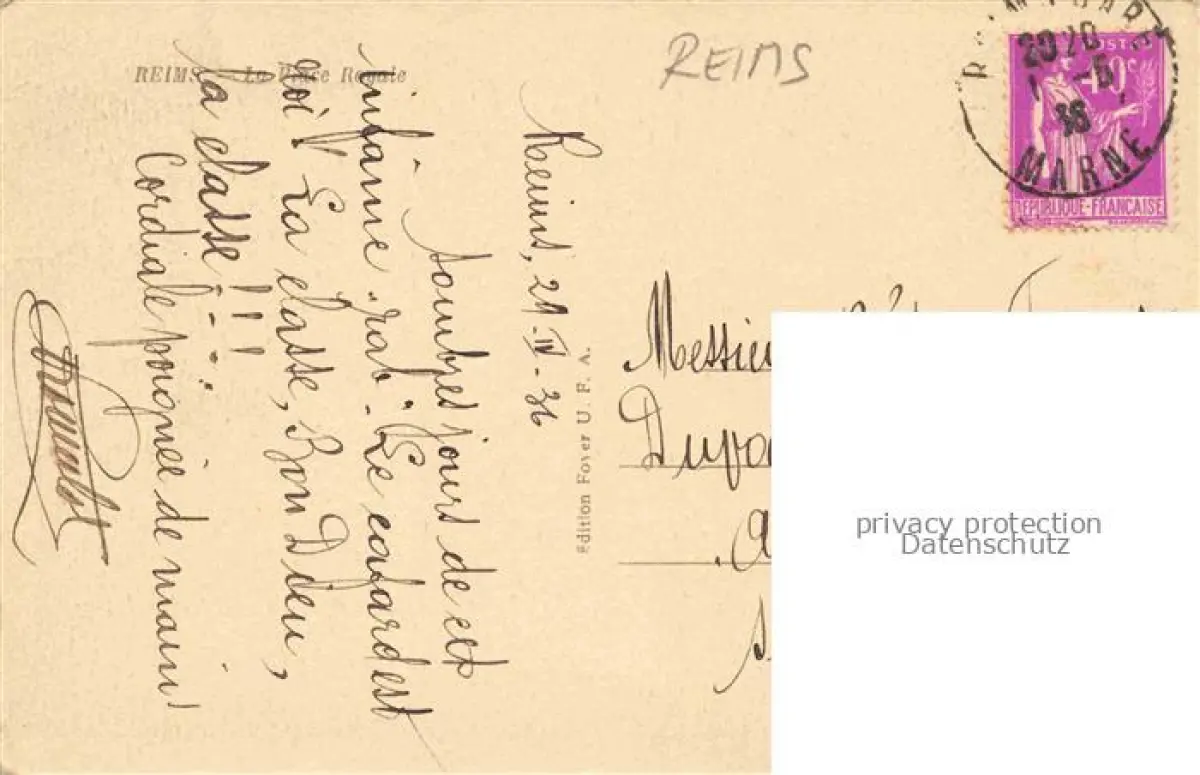 REIMS — La Place Royale
REIMS
Reims, 29-IV-36
Sombres jours de cet
infâme "rat". Le cafard est
roi! La classe, Bon Dieu,
la classe!!!...
Cordiale poignée de main!
Edition Foyer U. F. A.
Messieu
Dupo
MARNE
20 20
1 -5
36
POSTES
40c
REPUBLIQUE-FRANÇAISE
privacy protection
Datenschutz